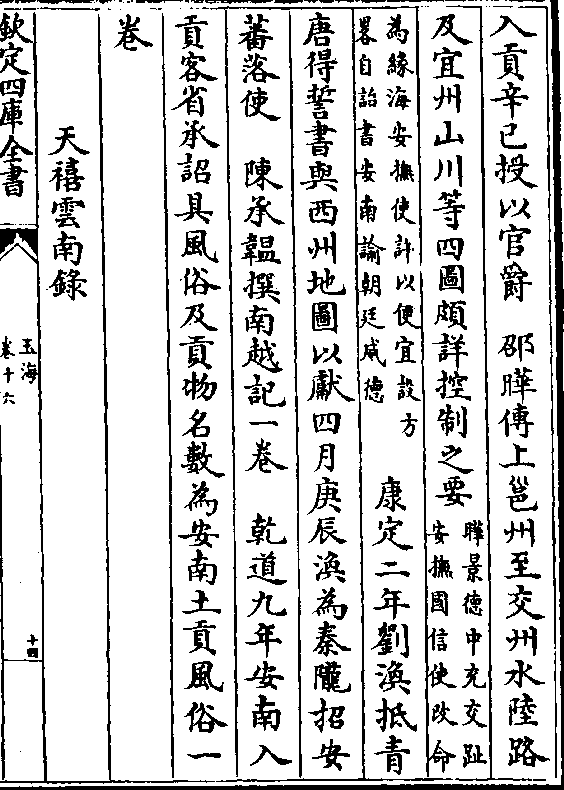 入貢辛已授以官爵　邵曄傳上邕州至交州水陸路
及宜州山川等四圖頗詳控制之要曄景德中充交趾安撫國信使改命
為緣海安撫使許以便宜設方畧自詒書安南諭朝廷威德　康定二年劉渙抵青
唐得誓書與西州地圖以獻四月庚辰渙為秦隴招安
蕃落使　陳承韞撰南越記一卷　乾道九年安南入
貢客省承詔具風俗及貢物名數為安南土貢風俗一
卷
天禧雲南錄
欽定四庫全書
玉海
卷十六
十四